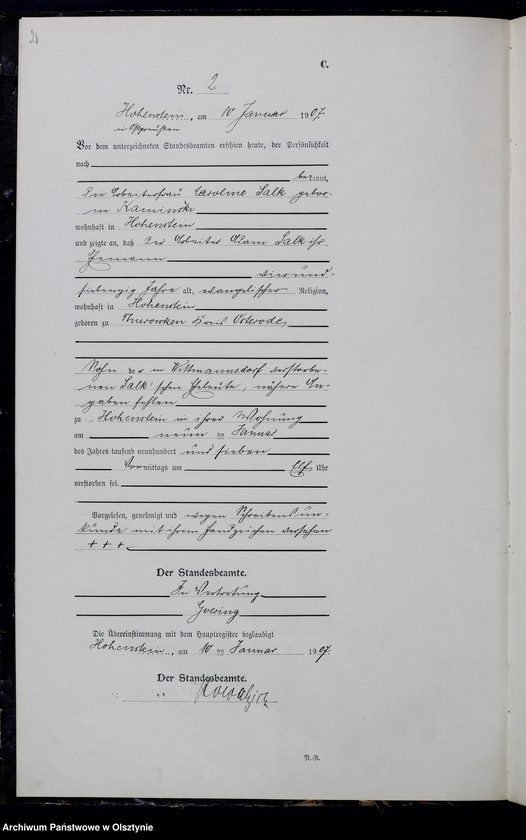 2
C.
Nr. 2
Hohenstein, am 10 Januar 1907.
in Ostpreußen
Vor dem unterzeichneten Standesbeamten erschien heute, der Persönlichkeit
nach
bekannt,
die Arbeiterfrau Caroline Salk gebor-
ne Kaminski
wohnhaft in Hohenstein
und zeigte an, daß der Arbeiter Adam Salk ihr
Ehemann
vierund-
siebenzig Jahre alt, evangelischer Religion,
wohnhaft in Hohenstein
geboren zu Thurowken Kreis Osterode,
Sohn der in Wittmannsdorf verstorbe-
nen Salk'schen Eheleute, nähere An-
gaben fehlen
zu Hohenstein in ihrer Wohnung
am neun ten Januar
des Jahres tausend neunhundert und sieben
Vormittags um Elf Uhr
verstorben sei.
Vorgelesen, genehmigt und wegen Schreibensun-
kunde mit ihrem Handzeichen versehen
+ + +
Der Standesbeamte.
In Vertretung
Goering
Die Übereinstimmung mit dem Hauptregister beglaubigt
Hohenstein, am 10 ten Januar 1907.
Der Standesbeamte.
N.-R.
Archiwum Państwowe w Olsztynie